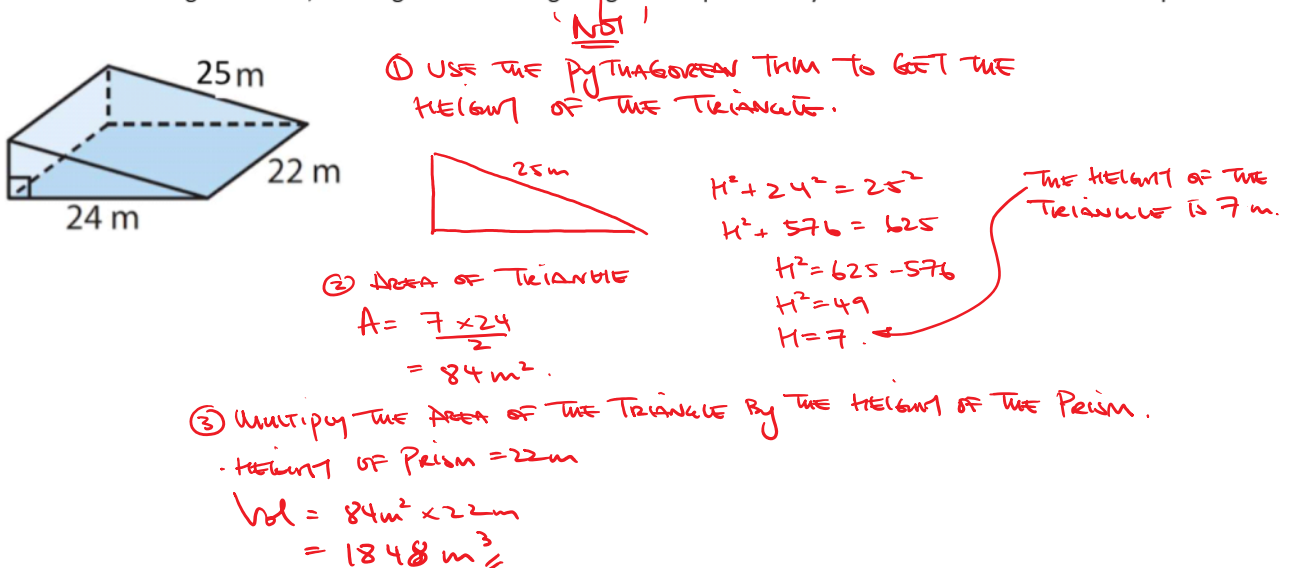 'NOT'
25 m
22 m
24 m
① USE THE PYTHAGOREAN THM TO GET THE
HEIGHT OF THE TRIANGLE.
25m
H² + 24² = 25²
H² + 576 = 625
H² = 625 - 576
H² = 49
H = 7.
THE HEIGHT OF THE
TRIANGLE IS 7 m.
② AREA OF TRIANGLE
A = 7 × 24
2
= 84 m².
③ MULTIPLY THE AREA OF THE TRIANGLE BY THE HEIGHT OF THE PRISM.
· HEIGHT OF PRISM = 22m
Vol = 84m² × 22m
= 1848 m³